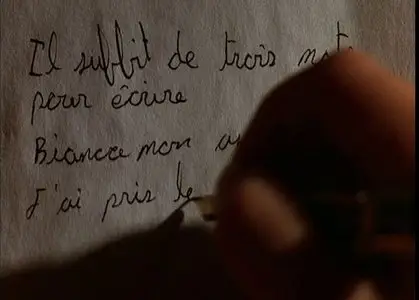 Il suffit de trois
pour écrire
Biancae mon
J'ai pris le